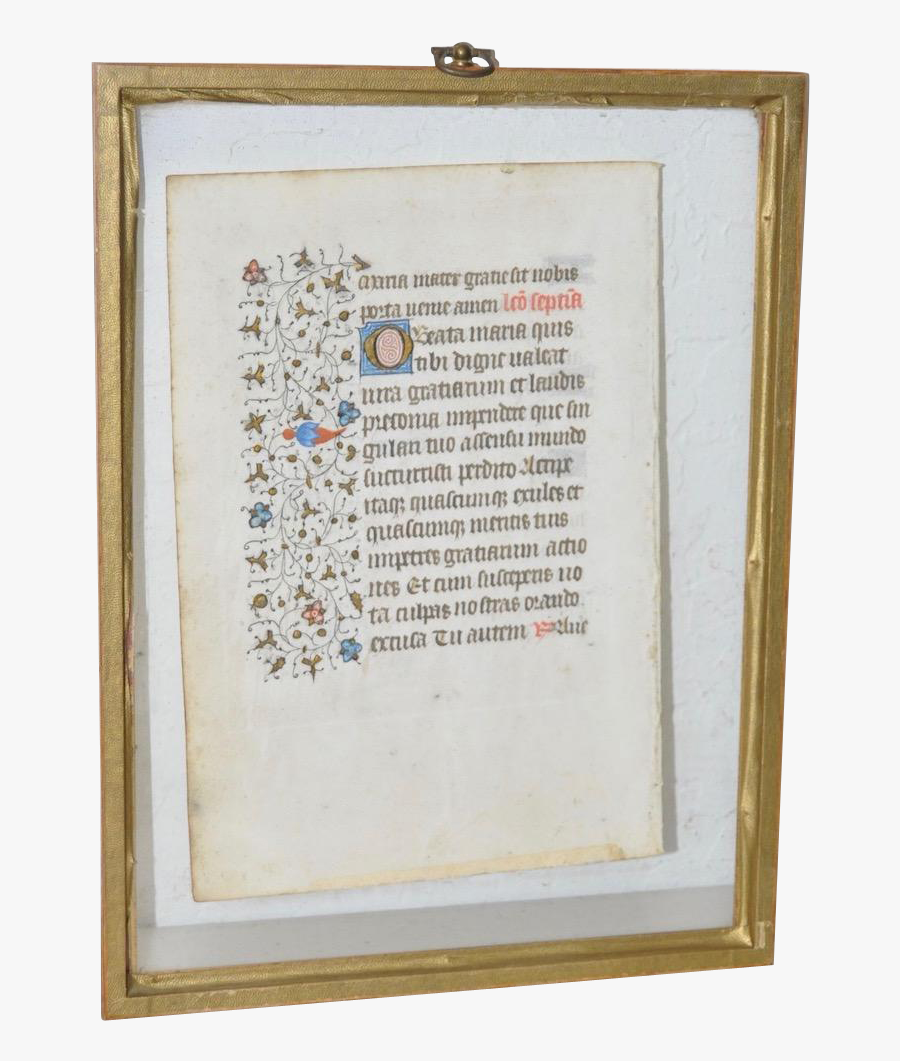 a maria mater gratie sit nobis
porta uenie amen lcō septīa
O Beata maria quis
tibi digne ualeat
iura gratiarum et laudis
preconia impendere que sin
gulari tuo assensu mundo
succurristi perdito Accipe
itaqꝫ quascumqꝫ exiles et
quascumqꝫ meritis tuis
impetres gratiarum actio
nes Et cum susceperis uo
ta culpas nostras orando
excusa Tu autem Aue